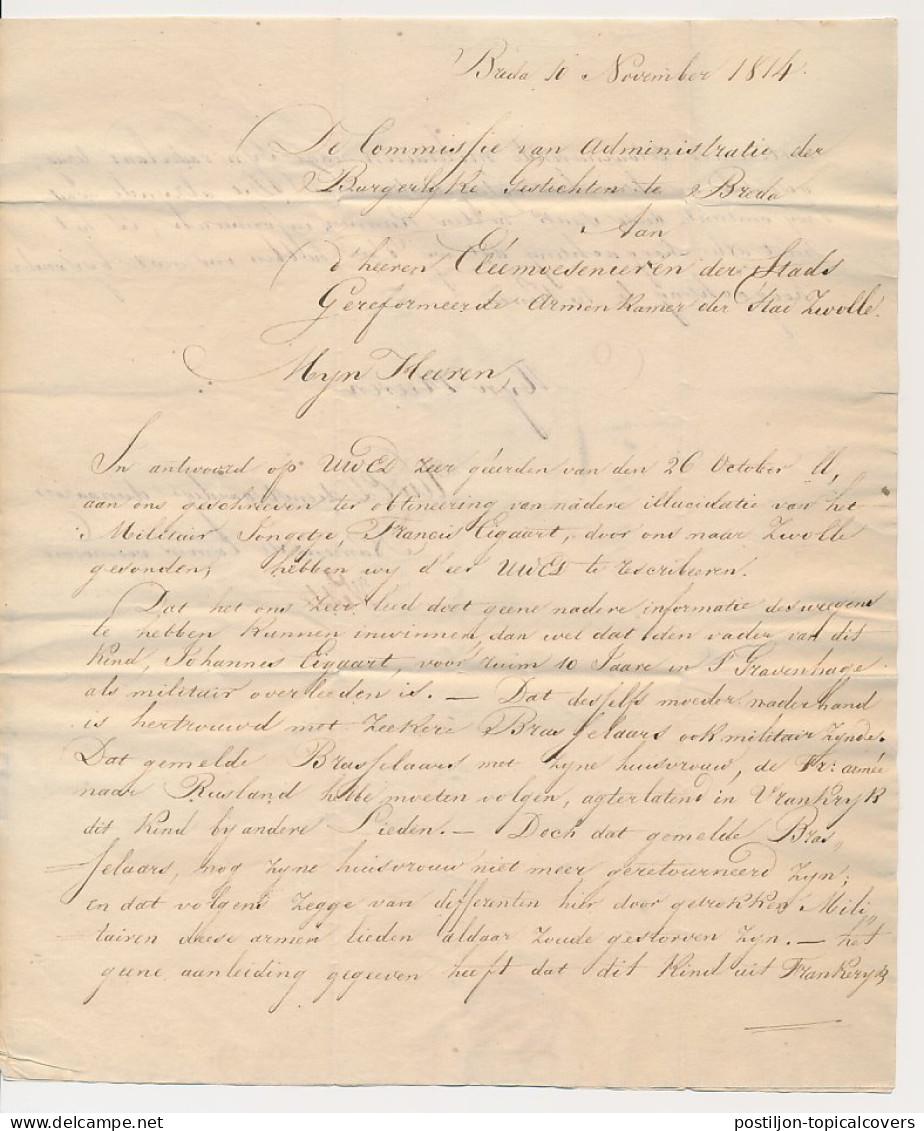 Breda 10 November 1814.
De Commissie van Administratie der
Burgerlyke Gestichten te Breda
Aan
d'heeren Eléemoesenieren der Stads
Gereformeerde Armenkamer der Stad Zwolle.
Myn Heeren,
In antwoord op UWED zeer geerden van den 26 October ll,
aan ons geschreven ter obtineering van nadere illucidatie van het
Militair Jongetje, Francis Eigaart, door ons naar Zwolle
gesonden; hebben wy d'eer UWED te rescribeeren.
Dat het ons zeer leid doet geene nadere informatie desweegens
te hebben kunnen inwinnen, dan wel dat den vader van dit
kind, Johannes Eigaart, voor ruim 10 Jaare in S'Gravenhage
als militair overleeden is. — Dat deszelfs moeder naderhand
is hertrouwd met zeekere Brasselaars ook militair zynde.
Dat gemelde Brasselaars met zyne huisvrouw, de Fr: armée
naar Rusland hebbe moeten volgen, agterlatend in Vrankryk
dit kind by andere Lieden. — Doch dat gemelde Bras,,
selaars, nog zyne huisvrouw niet meer geretourneerd zyn;
en dat volgens zegge van differenten hier door getrokken Mili
tairen deese armen lieden aldaar zoude gestorven zyn. — het
geene aanleiding gegeeven heeft dat dit kind uit Frankryk
postiljon-topicalcovers